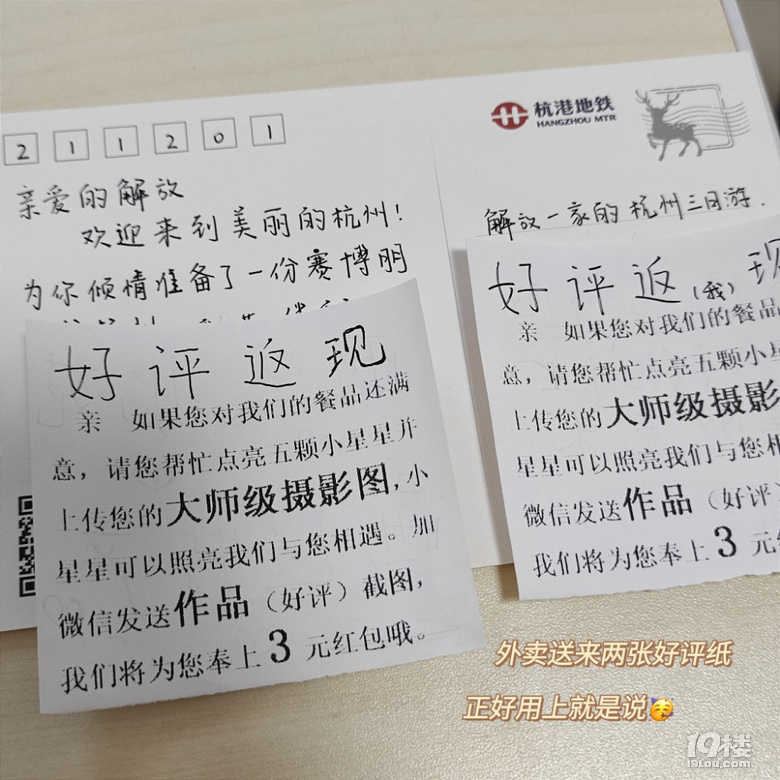 杭港地铁
HANGZHOU MTR
2 1 1 2 0 1
亲爱的解放
欢迎来到美丽的杭州!
为你倾情准备了一份赛博明
解放一家的杭州三日游.
好评返现
亲 如果您对我们的餐品还满
意，请您帮忙点亮五颗小星星并
上传您的大师级摄影图，小
星星可以照亮我们与您相遇。加
微信发送作品（好评）截图，
我们将为您奉上 3 元红包哦。
好评返(我)现
亲 如果您对我们的餐品
意，请您帮忙点亮五颗小星
上传您的大师级摄影
星星可以照亮我们与您相
微信发送作品（好评）
我们将为您奉上 3 元红
外卖送来两张好评纸
正好用上就是说🥳
19楼
19lou.com